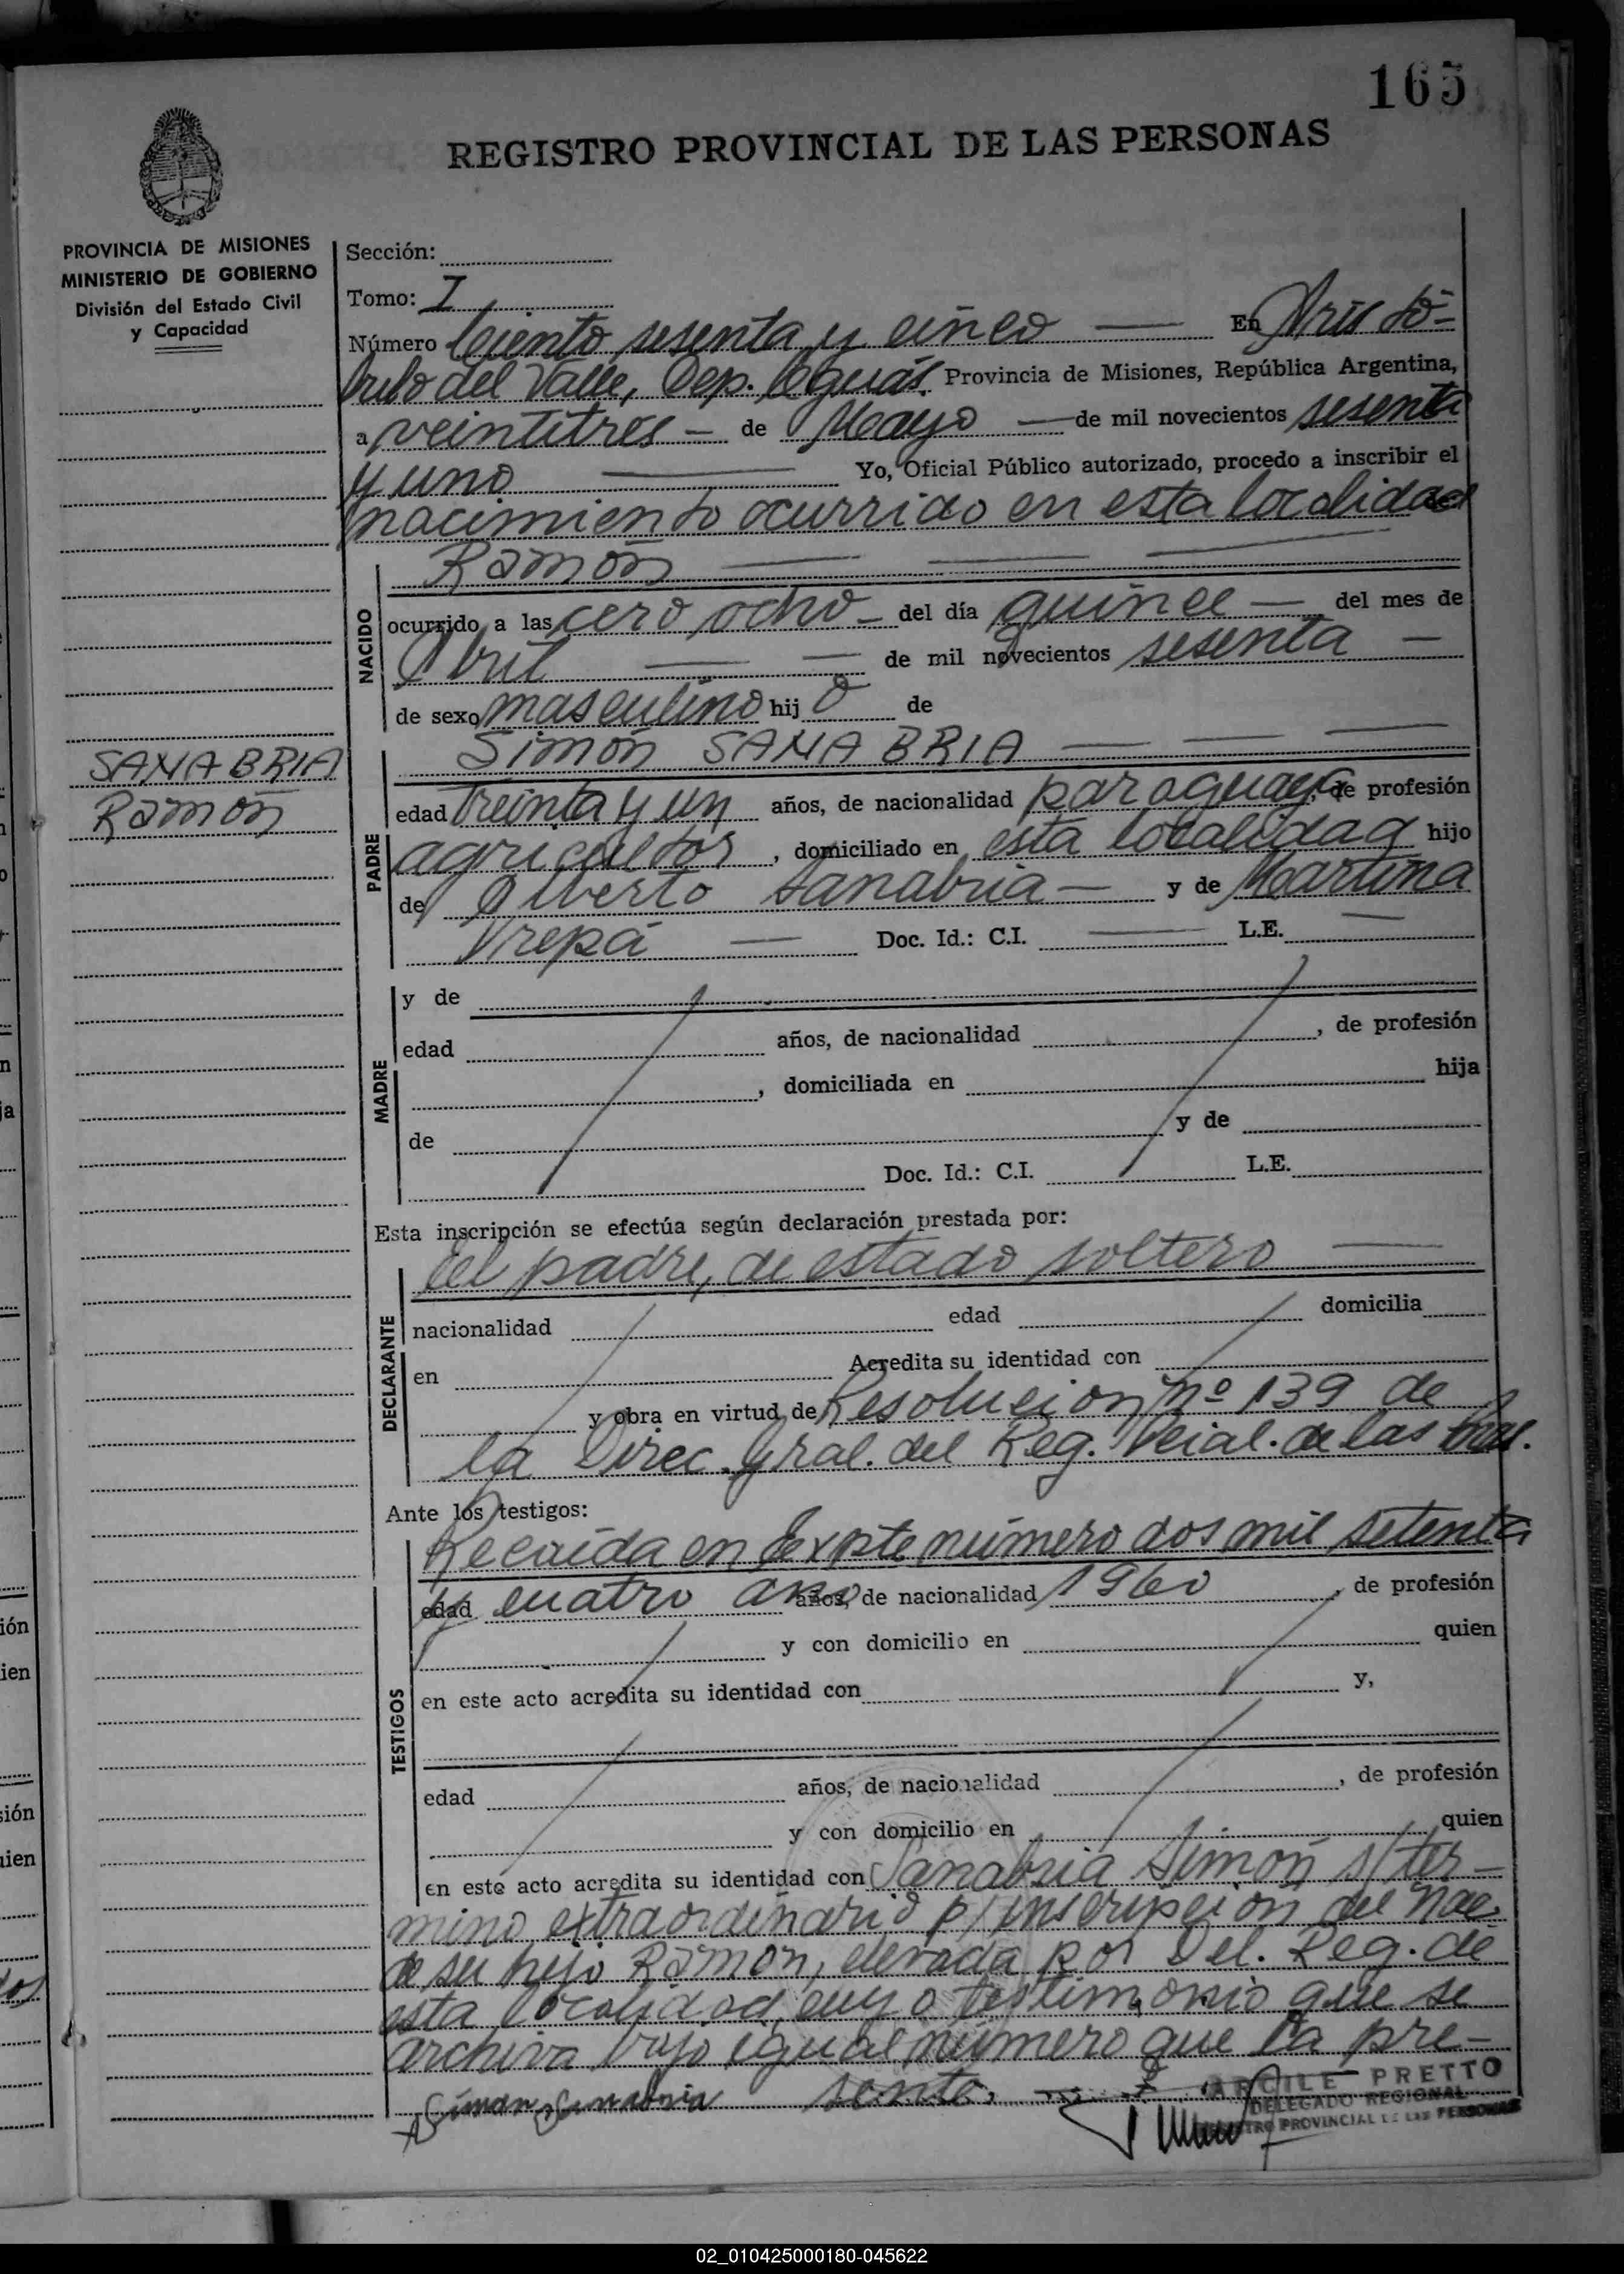 165
REGISTRO PROVINCIAL DE LAS PERSONAS
PROVINCIA DE MISIONES
MINISTERIO DE GOBIERNO
División del Estado Civil
y Capacidad
Sección:
Tomo: I
Número Ciento sesenta y cinco — En Aristó-
bulo del Valle, Dep. Cgüás. Provincia de Misiones, República Argentina,
a veintitres — de Mayo — de mil novecientos sesenta
y uno — Yo, Oficial Público autorizado, procedo a inscribir el
nacimiento ocurrido en esta localidad
NACIDO
Ramón — — —
ocurrido a las cero ocho — del día quince — del mes de
Abril — — de mil novecientos sesenta —
de sexo masculino hij o de
SANABRIA
Ramón
PADRE
Simón SANABRIA — — —
edad treinta y un años, de nacionalidad paraguaya, de profesión
agricultor, domiciliado en esta localidad hijo
de Alberto Sanabria — y de Martina
— Doc. Id.: C.I. — L.E. —
MADRE
y de
edad años, de nacionalidad , de profesión
, domiciliada en hija
de y de
Doc. Id.: C.I. L.E.
Esta inscripción se efectúa según declaración prestada por:
DECLARANTE
el padre, de estado soltero —
nacionalidad edad domicilia
en Acredita su identidad con
y obra en virtud de Resolucion nº 139 de
la Direc. Gral. del Reg. Pcial. de las Pers.
Ante los testigos:
TESTIGOS
Recaída en Expte número dos mil setenta
y cuatro año 1960
edad años, de nacionalidad , de profesión
y con domicilio en quien
en este acto acredita su identidad con y,
edad años, de nacionalidad , de profesión
y con domicilio en quien
en este acto acredita su identidad con Sanabria Simón s/tér-
mino extraordinario p/inscripción del nac.
de su hijo Ramón, elevada por Del. Reg. de
esta localidad, cuyo testimonio que se
archiva bajo igual número que la pre-
sente.
Simon Sanabria
ARCILE PRETTO
DELEGADO REGIONAL
REGISTRO PROVINCIAL DE LAS PERSONAS
02_010425000180-045622